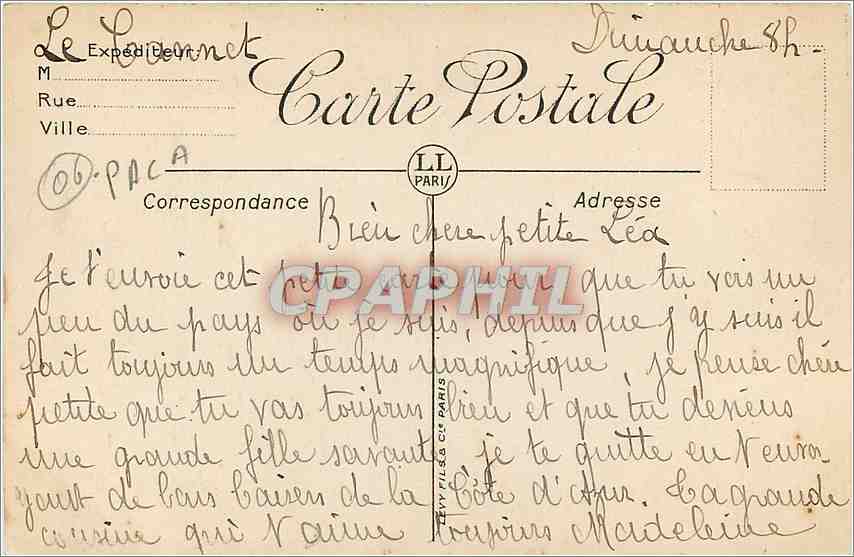 Le Cannet
Dimanche 8h-
Expéditeur:
M
Rue
Ville
Carte Postale
06. PACA
LL
PARIS
Correspondance
Adresse
Bien chere petite Léa
Je t'envoie cet petite carte pour que tu vois un
peu du pays où je suis, depuis que j'y suis il
fait toujours un temps magnifique, je pense chère
petite que tu vas toujours bien et que tu deviens
une grande fille savante je te quitte en t'envo-
yant de bons baisers de la Côte d'Azur. Ta grande
cousine qui t'aime toujours Madeleine
CPAPHIL
LÉVY FILS & Cie PARIS